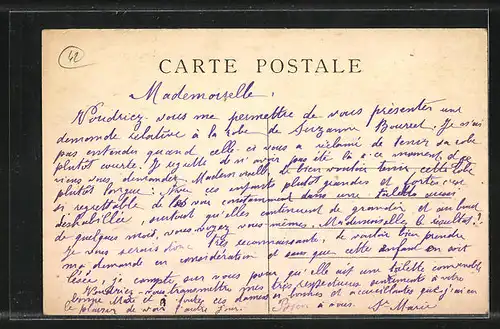 42
CARTE POSTALE
Mademoiselle,
Voudriez-vous me permettre de vous présenter une
demande relative à la robe de Suzanne Bourrel. Je n'ai
pas entendu quand celle-ci vous a réclamé de tenir sa robe
plutôt courte. Je regrette de n'avoir pas été là à ce moment. Je
viens vous demander Mademoiselle de bien vouloir tenir cette robe
plutôt longue: avec ces enfants plutôt grandes et fortes c'est
si regrettable de les voir constamment dans une toilette aussi
déshabillée, surtout qu'elles continuent de grandir et au bout
de quelques mois, vous voyez vous-mêmes, Mademoiselle le résultat?
Je vous serais donc très reconnaissante, de vouloir bien prendre
ma demande en considération et sans que cette enfant en soit
lésée, je compte sur vous pour qu'elle ait une toilette convenable
Voudriez-vous transmettre mes très respectueux sentiments à votre
bonne et à toutes ces dames si bonnes et accueillantes que j'ai eu
le plaisir de voir l'autre jour. Bien à vous. St Marie